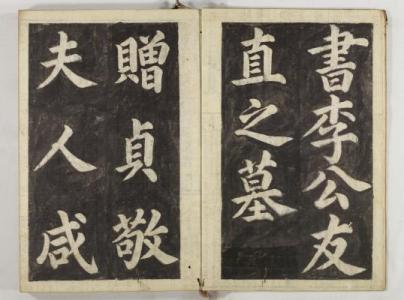 書李公友
直之墓
贈貞敬
夫人咸